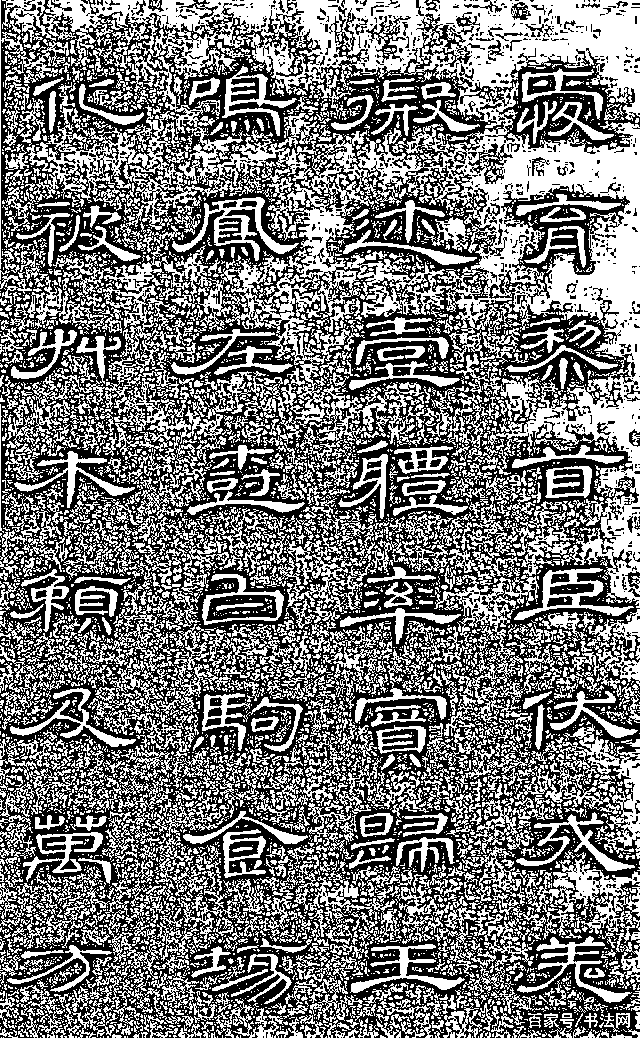 愛育黎首臣伏戎羌
遐邇壹軆率賓歸王
鳴鳳在樹白駒食場
化被艸木賴及萬方
百家号/书法网